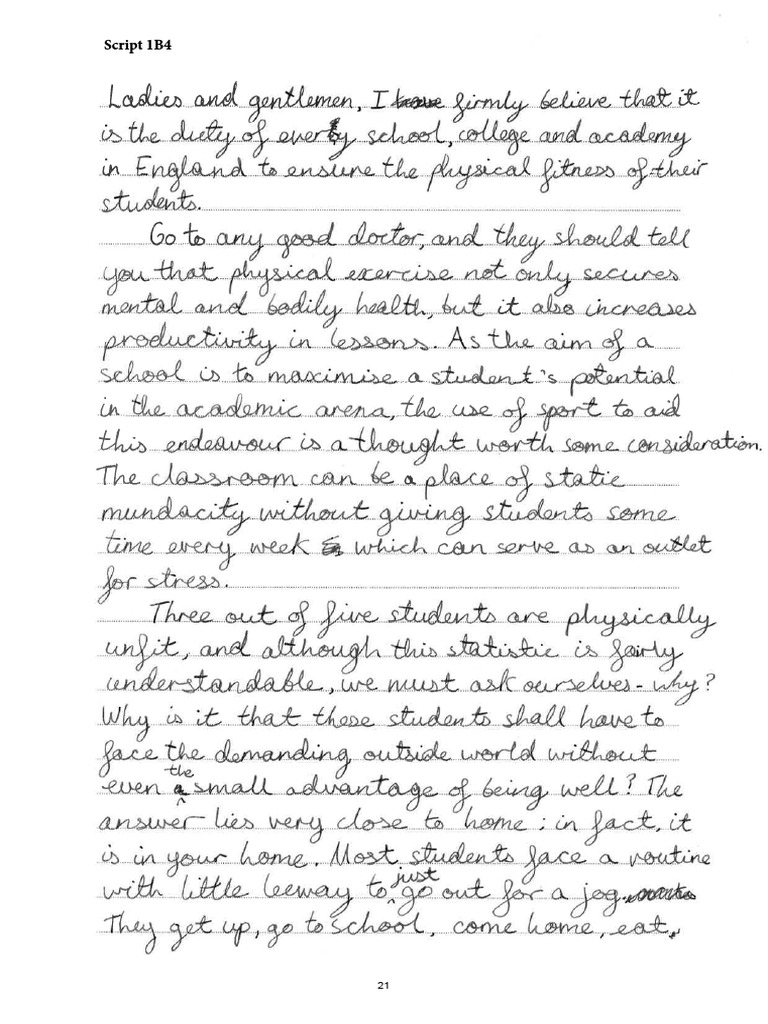 Script 1B4
Ladies and gentlemen, I firmly believe that it
is the duety of every school, college and academy
in England to ensure the physical fitness of their
students.
Go to any good doctor, and they should tell
you that physical exercise not only secures
mental and bodily health, but it also increases
productivity in lessons. As the aim of a
school is to maximise a student's potential
in the academic arena, the use of sport to aid
this endeavour is a thought worth some consideration.
The classroom can be a place of static
mundacity without giving students some
time every week which can serve as an outlet
for stress.
Three out of five students are physically
unfit, and although this statistic is fairly
understandable, we must ask ourselves - why?
Why is it that these students shall have to
face the demanding outside world without
even the small advantage of being well? The
answer lies very close to home; in fact, it
is in your home. Most students face a routine
with little leeway to just go out for a jog.
They get up, go to school, come home, eat,
21